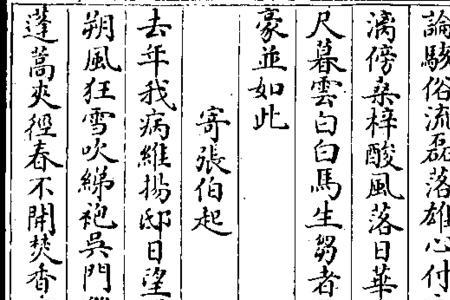 論駭俗流磊落雄心付
漓傍桑梓酸風落日華
尺暮雲白白馬生芻者
豪並如此
寄張伯起
去年我病維揚邸日望
朔風狂雪吹綈袍吳門
蓬蒿夾徑春不開焚香